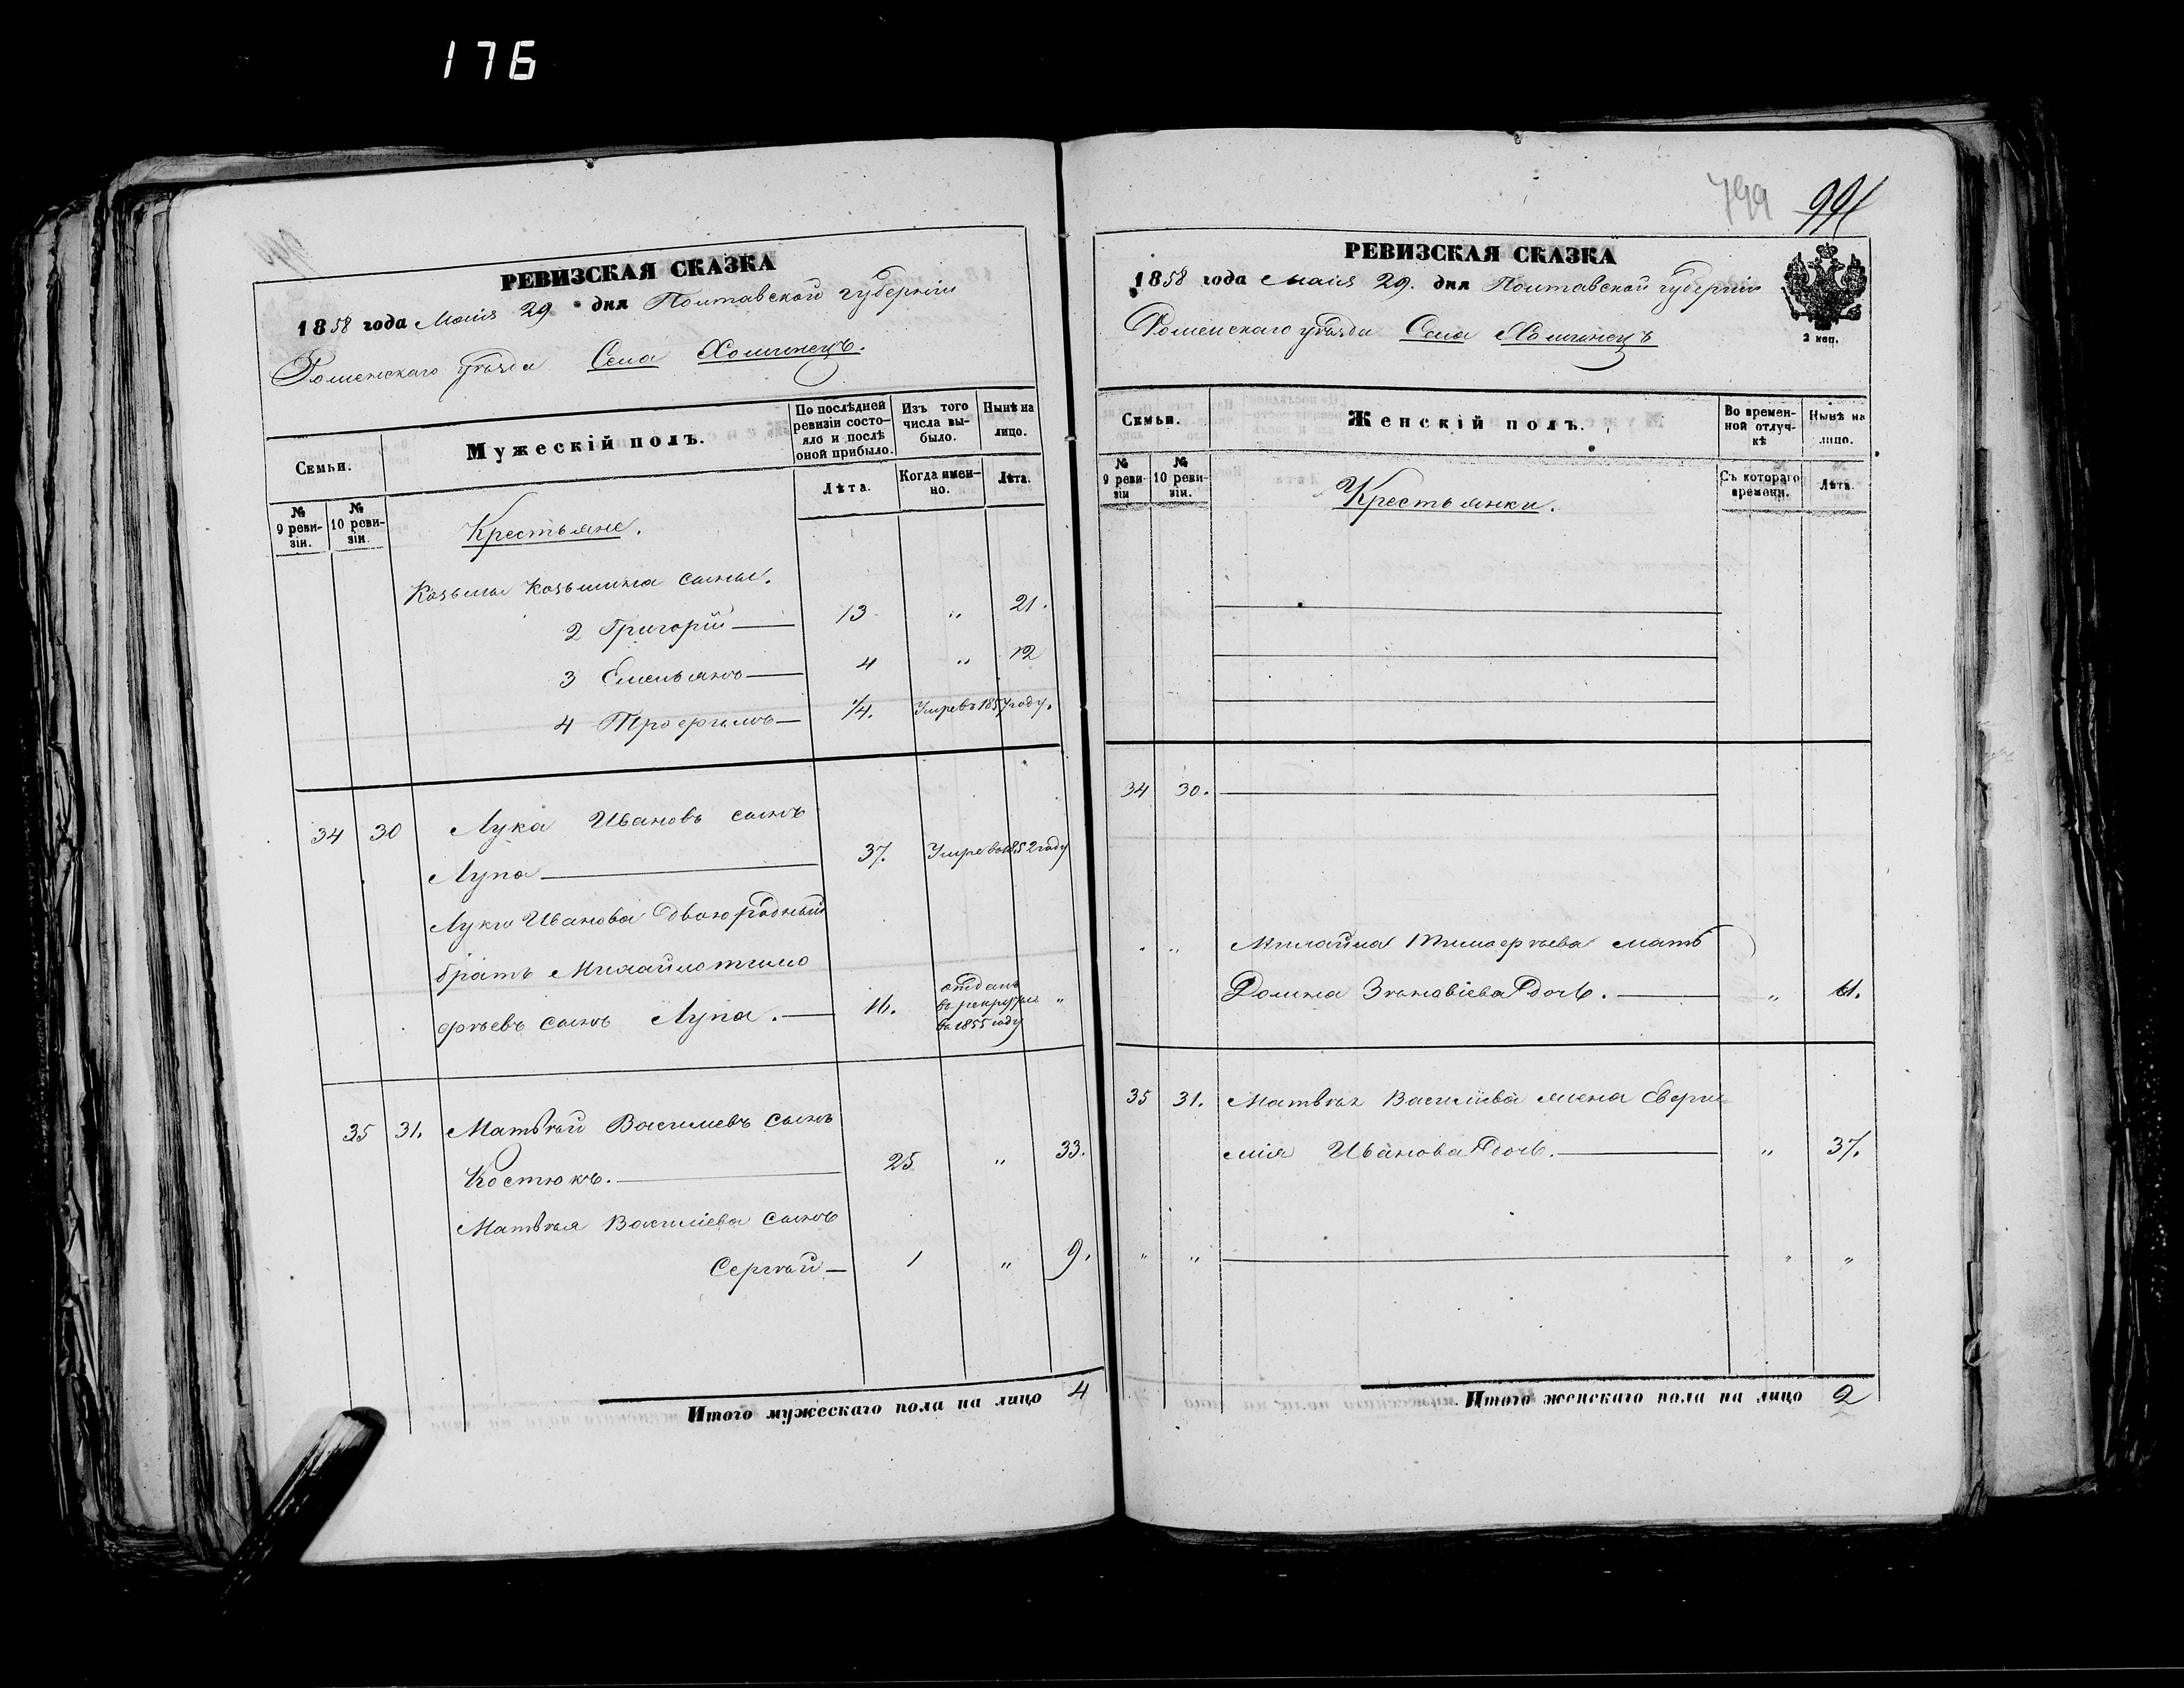 176
РЕВИЗСКАЯ СКАЗКА
1858 года Маія 29 дня Полтавской губерніи
Роменскаго уѣзда Села Хоминецъ.
Семьи.
Мужескій полъ.
По послѣдней ревизіи состояло и послѣ оной прибыло.
Изъ того числа выбыло.
Нынѣ на лицо.
№ 9 ревизіи.
№ 10 ревизіи.
Лѣта.
Когда именно.
Лѣта.
Крестьяне.
Козьмы Козьмина сыны.
2 Григорій 13 „ 21.
3 Емельянъ 4 „ 12
4 Трофимъ 1/4. Умре въ 1857 году.
34 30 Лука Ивановъ сынъ
Лупа 37. Умре въ 1852 году
Луки Иванова двоюродный
братъ Михайло Тимо
фѣевъ сынъ Лупа. 16. отданъ въ рекруты въ 1855 году „
35 31. Матвѣй Васильевъ сынъ
Костюкъ. 25 „ 33.
Матвѣя Василіева сынъ
Сергѣй 1 „ 9.
Итого мужескаго пола на лицо 4
799
РЕВИЗСКАЯ СКАЗКА
1858 года Маія 29. дня Полтавской губерніи
Роменскаго уѣзда Села Хоминецъ
2 коп.
Семьи.
Женскій полъ.
Во временной отлучкѣ
Нынѣ на лицо.
№ 9 ревизіи
№ 10 ревизіи.
Съ котораго времени.
Лѣта.
Крестьянки.
34 30.
„ „ Михайла Тимофѣева мать
Домна дочь. „
35 31. Матвѣя Василіева жена Евфи
мія Иванова дочь. „ 37.
„ „ „ „
Итого женскаго пола на лицо 2